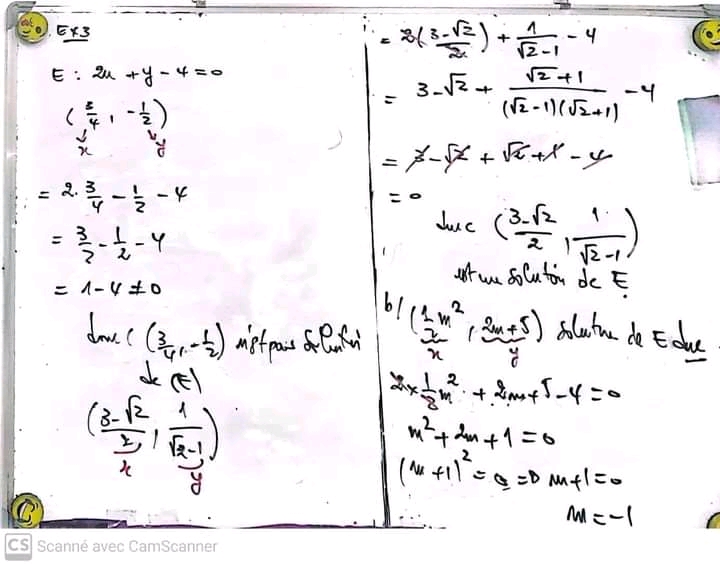 Ex3
E : 2x + y - 4 = 0
(3/4, -1/2)
x y
= 2. 3/4 - 1/2 - 4
= 3/2 - 1/2 - 4
= 1 - 4 ≠ 0
donc (3/4, -1/2) n'est pas solution
de (E)
((3-√2)/2, 1/(√2-1))
x y
= 2((3-√2)/2) + 1/(√2-1) - 4
= 3-√2 + (√2+1)/((√2-1)(√2+1)) - 4
= 3-√2 + √2+1 - 4
= 0
donc ((3-√2)/2, 1/(√2-1))
est une solution de E
b/ (1/2 m², 2m+5) solution de E donc
x y
2 × 1/2 m² + 2m+5-4=0
m² + 2m + 1 = 0
(m+1)² = 0 => m+1=0
m = -1
CS Scanné avec CamScanner